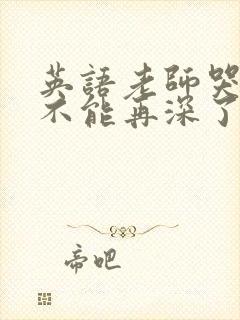 英語老師哭
不能再深了
帝吧